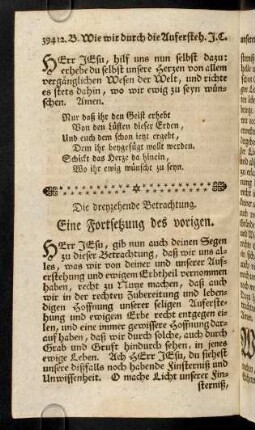 394 12. B. Wie wir durch die Aufersteh. J. C.
HErr JEsu, hilf uns nun selbst dazu:
erhebe du selbst unsere Herzen von allem
vergänglichen Wesen der Welt, und richte
es stets dahin, wo wir ewig zu seyn wün-
schen. Amen.
Nur daß ihr den Geist erhebt
Von den Lüsten dieser Erden,
Und euch dem schon jetzt ergebt,
Dem ihr beygefügt wollt werden.
Schickt das Herze da hinein,
Wo ihr ewig wünscht zu seyn.
Die dreyzehende Betrachtung.
Eine Fortsetzung des vorigen.
HErr JEsu, gib nun auch deinen Segen
zu dieser Betrachtung, daß wir uns al-
les, was wir von deiner und unserer Auf-
erstehung und ewigem Erbtheil vernommen
haben, recht zu Nuze machen, daß auch
wir in der rechten Zubereitung und leben-
digen Hoffnung unserer seligen Auferste-
hung und ewigem Erbe recht entgegen ei-
len, und eine immer gewissere Hoffnung dar-
auf haben, daß wir durch solche, auch durch
Grab und Gruft hindurch sehen, in jenes
ewige Leben. Ach HErr JEsu, du siehest
unsere disfalls noch habende Finsterniß und
Unwissenheit. O mache Licht unserer Fin-
sterniß,